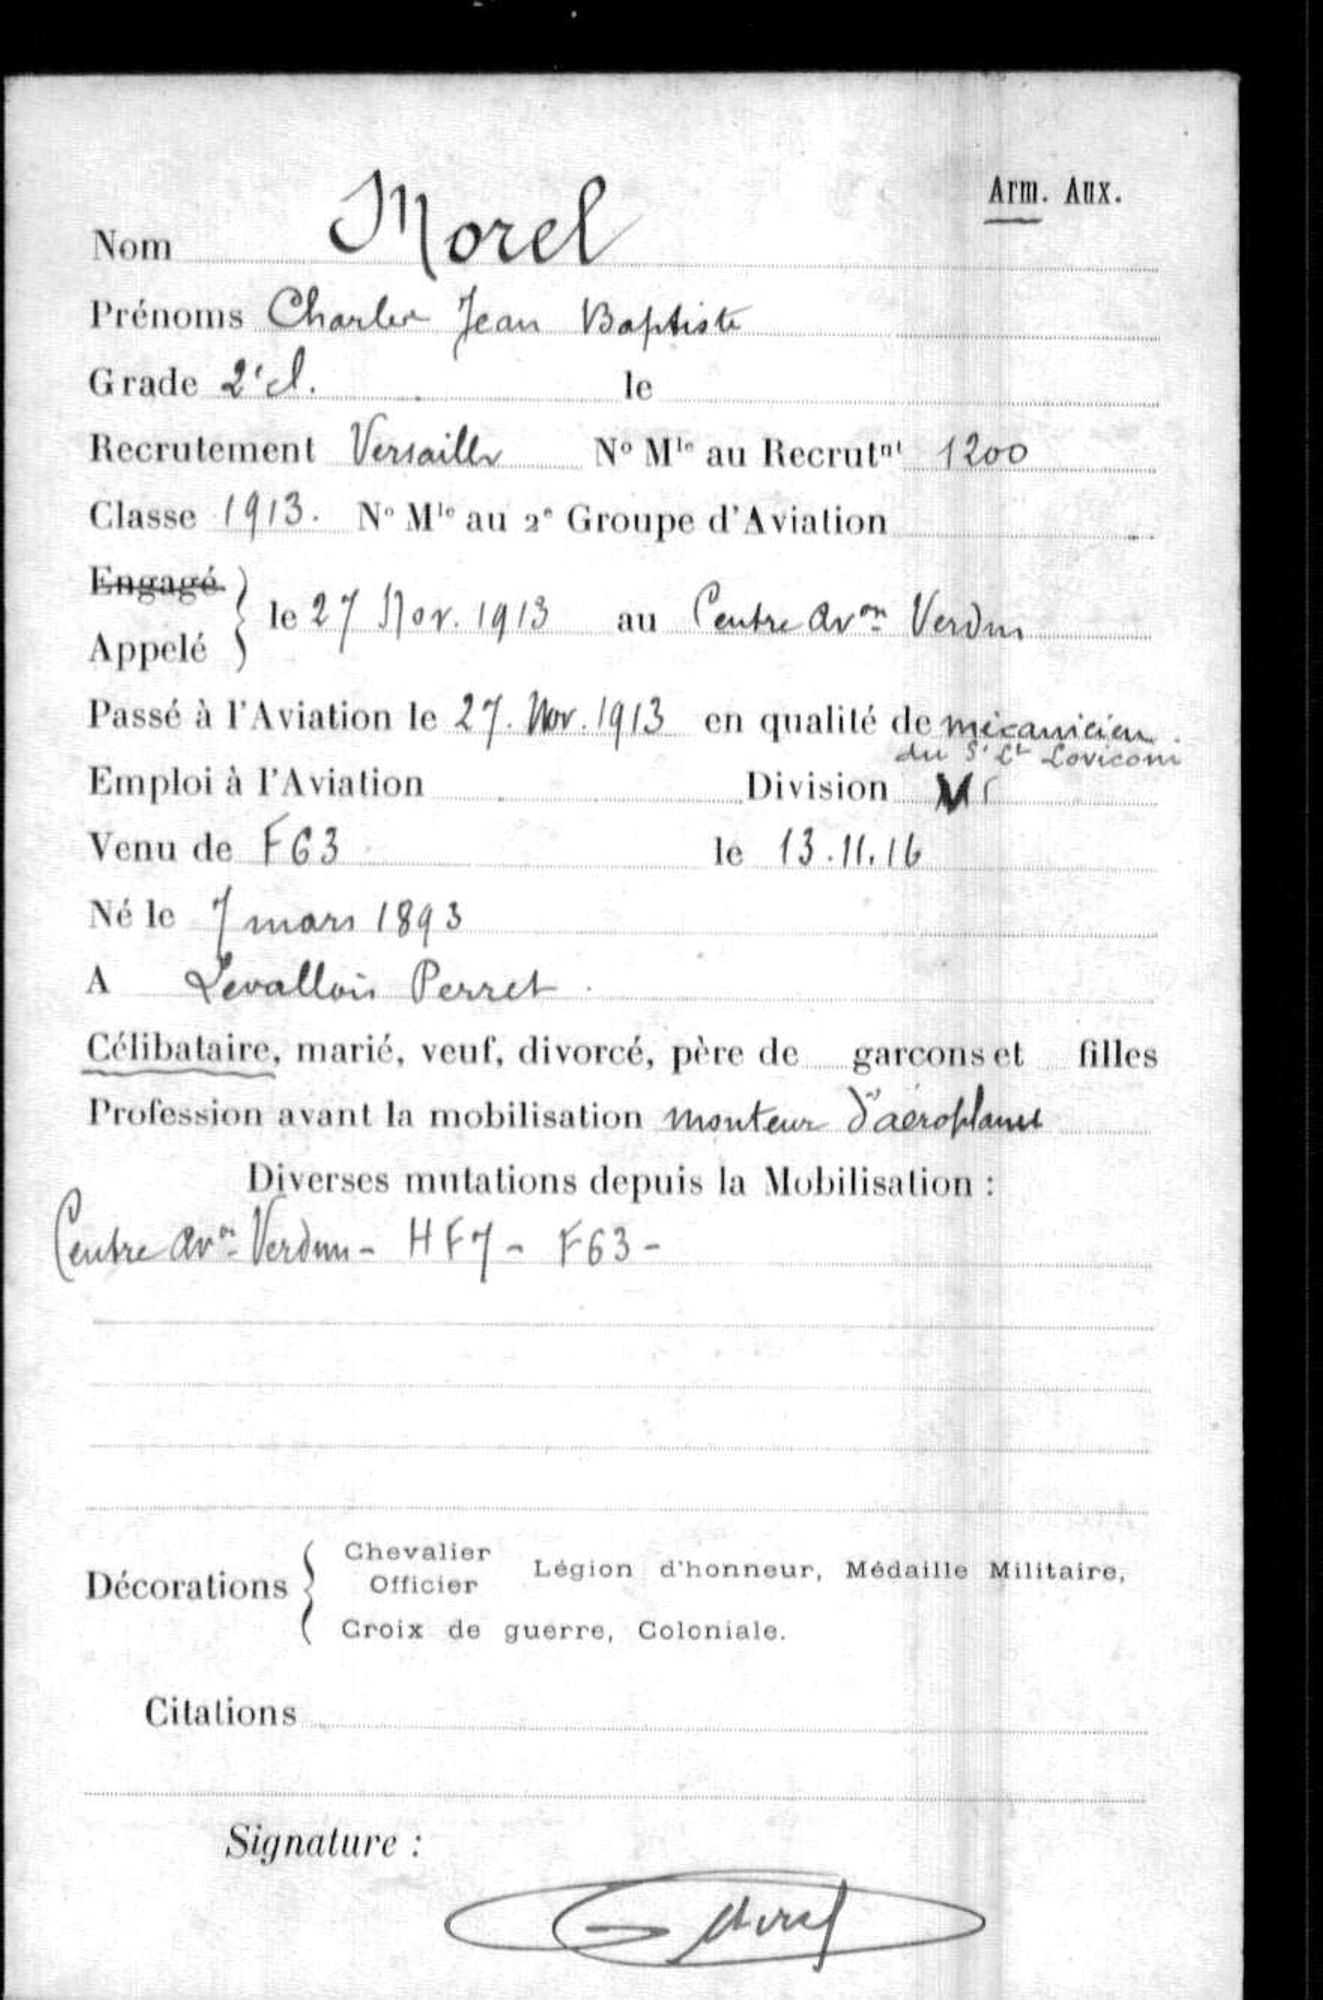 Arm. Aux.
Nom Morel
Prénoms Charles Jean Baptiste
Grade 2e cl. le
Recrutement Versailles No Mle au Recrutnt 1200
Classe 1913. No Mle au 2e Groupe d'Aviation
Engagé
Appelé
le 27 Nov. 1913 au Centre Avon Verdun
Passé à l'Aviation le 27. Nov. 1913 en qualité de mécanicien
du S/Lt Loviconi
Emploi à l'Aviation Division
Venu de F63 le 13.11.16
Né le 7 mars 1893
A Levallois Perret
Célibataire, marié, veuf, divorcé, père de garçons et filles
Profession avant la mobilisation monteur d'aéroplanes
Diverses mutations depuis la Mobilisation :
Centre Avon Verdun - HF7 - F63 -
Décorations
Chevalier
Officier
Légion d'honneur, Médaille Militaire,
Croix de guerre, Coloniale.
Citations
Signature :
Morel